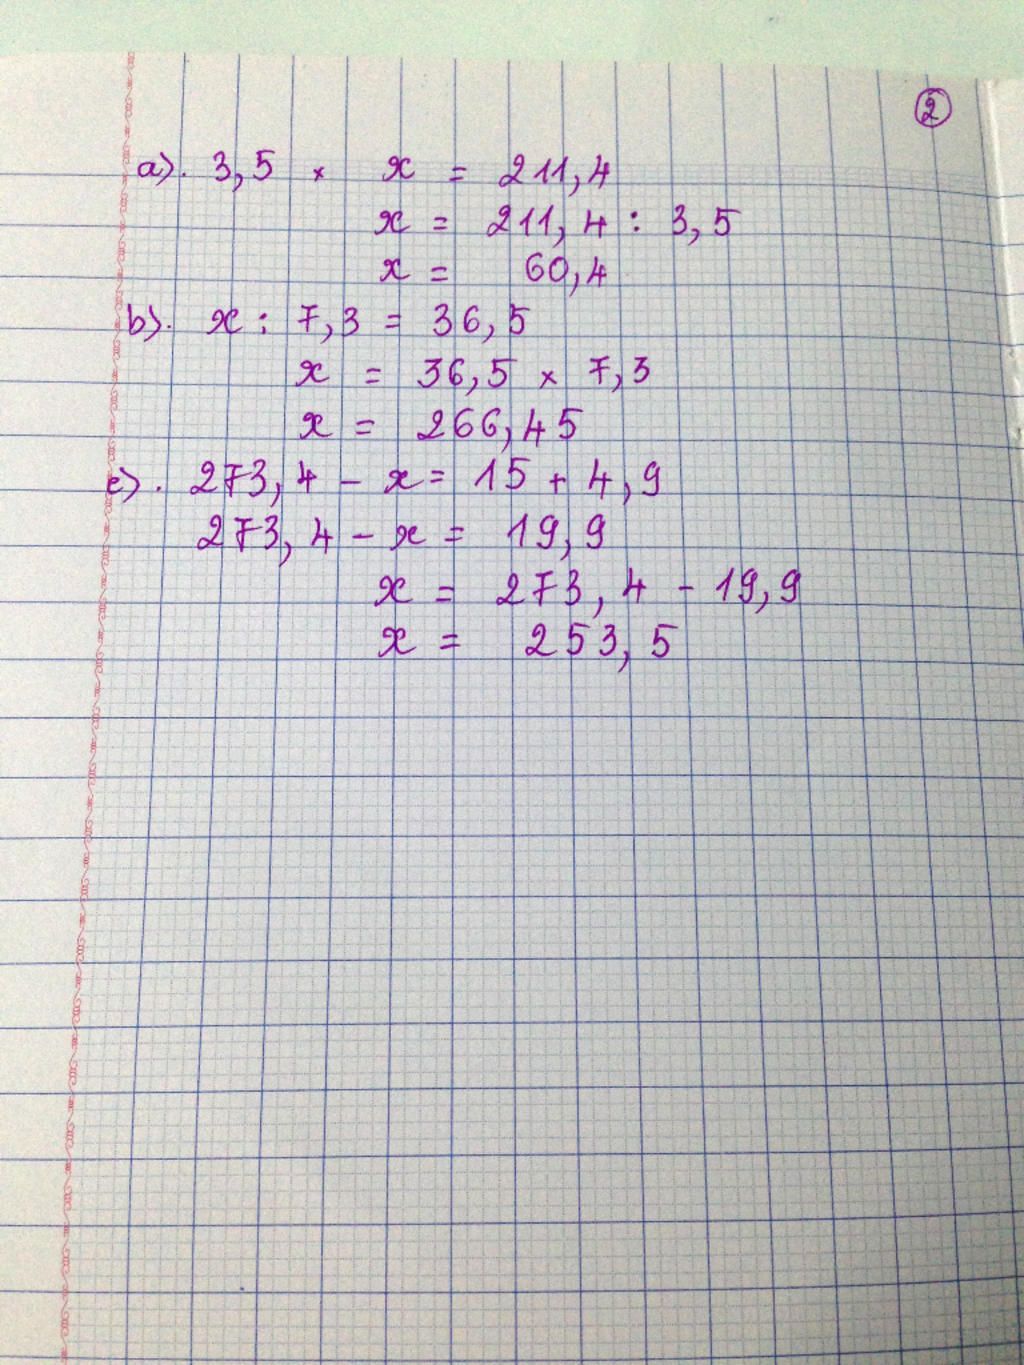 2
a). 3,5 × x = 211,4
x = 211,4 : 3,5
x = 60,4
b). x : 7,3 = 36,5
x = 36,5 × 7,3
x = 266,45
c). 273,4 - x = 15 + 4,9
273,4 - x = 19,9
x = 273,4 - 19,9
x = 253,5